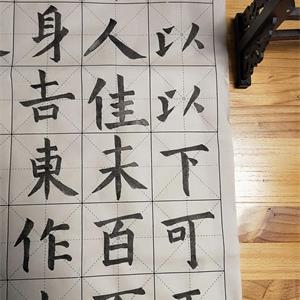 以以下可
人佳未百
身吉東作